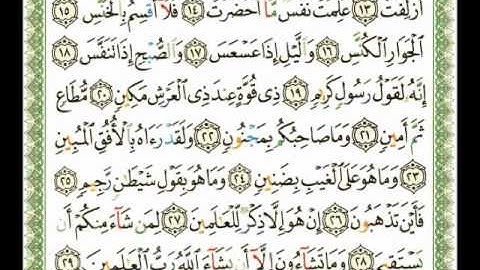 أُزْلِفَتْ ١٣ عَلِمَتْ نَفْسٌ مَّا أَحْضَرَتْ ١٤ فَلَا أُقْسِمُ بِالْخُنَّسِ ١٥
الْجَوَارِ الْكُنَّسِ ١٦ وَالَّيْلِ إِذَا عَسْعَسَ ١٧ وَالصُّبْحِ إِذَا تَنَفَّسَ ١٨
إِنَّهُ لَقَوْلُ رَسُولٍ كَرِيمٍ ١٩ ذِي قُوَّةٍ عِندَ ذِي الْعَرْشِ مَكِينٍ ٢٠ مُّطَاعٍ
ثَمَّ أَمِينٍ ٢١ وَمَا صَاحِبُكُم بِمَجْنُونٍ ٢٢ وَلَقَدْ رَءَاهُ بِالْأُفُقِ الْمُبِينِ
٢٣ وَمَا هُوَ عَلَى الْغَيْبِ بِضَنِينٍ ٢٤ وَمَا هُوَ بِقَوْلِ شَيْطَٰنٍ رَّجِيمٍ ٢٥
فَأَيْنَ تَذْهَبُونَ ٢٦ إِنْ هُوَ إِلَّا ذِكْرٌ لِّلْعَٰلَمِينَ ٢٧ لِمَن شَاءَ مِنكُمْ أَن
يَسْتَقِيمَ ٢٨ وَمَا تَشَاءُونَ إِلَّا أَن يَشَاءَ اللَّهُ رَبُّ الْعَٰلَمِينَ ٢٩